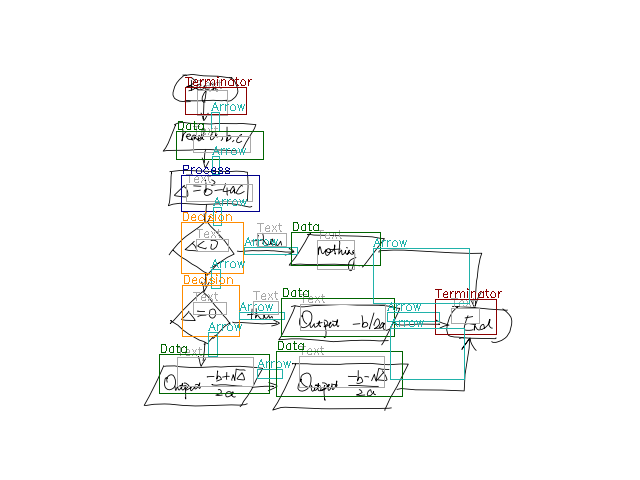 Terminator
Arrow
Data
Text
read a,b,c
Arrow
Process
Text
Δ=b-4ac
Arrow
Decision
Text
Δ<0
Text
then
Arrow
Data
Text
nothing
Arrow
Arrow
Decision
Text
Δ=0
Text
then
Arrow
Data
Text
Output -b/2a
Arrow
Terminator
Text
End
Arrow
Data
Text
Output -b+√Δ/2a
Arrow
Data
Text
Output -b-√Δ/2a
Arrow